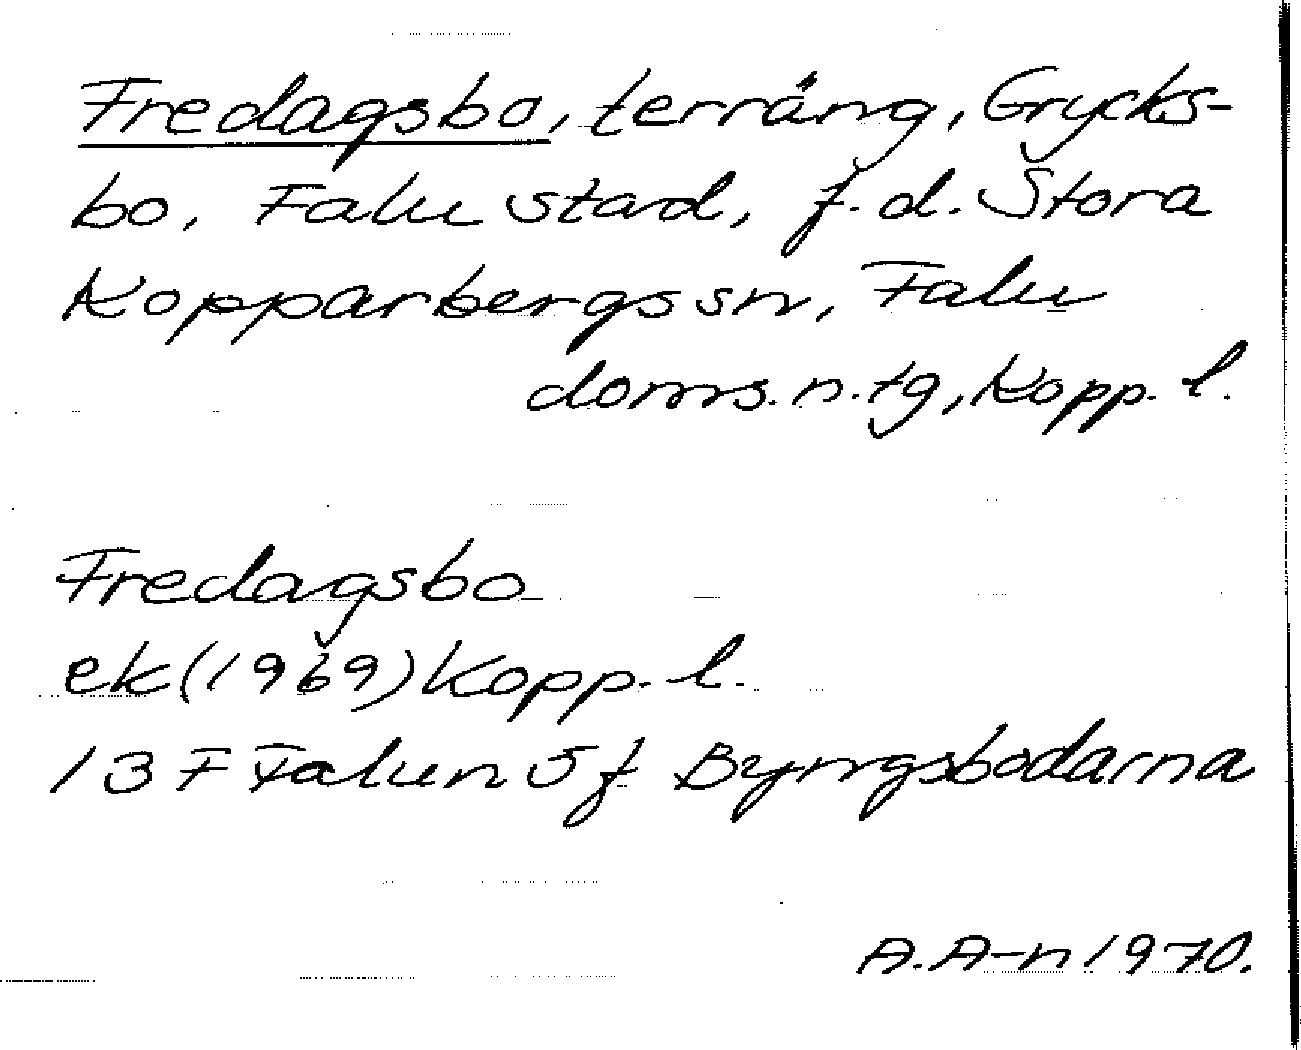 Fredagsbo, terräng, Grycks-
bo, Falu stad, f.d. Stora
Kopparbergs sn, Falu
doms. n. tg, Kopp. l.
Fredagsbo
ek (1969) Kopp. l.
13 F Falun 5 f Byngsbodarna
A. A-n 1970.